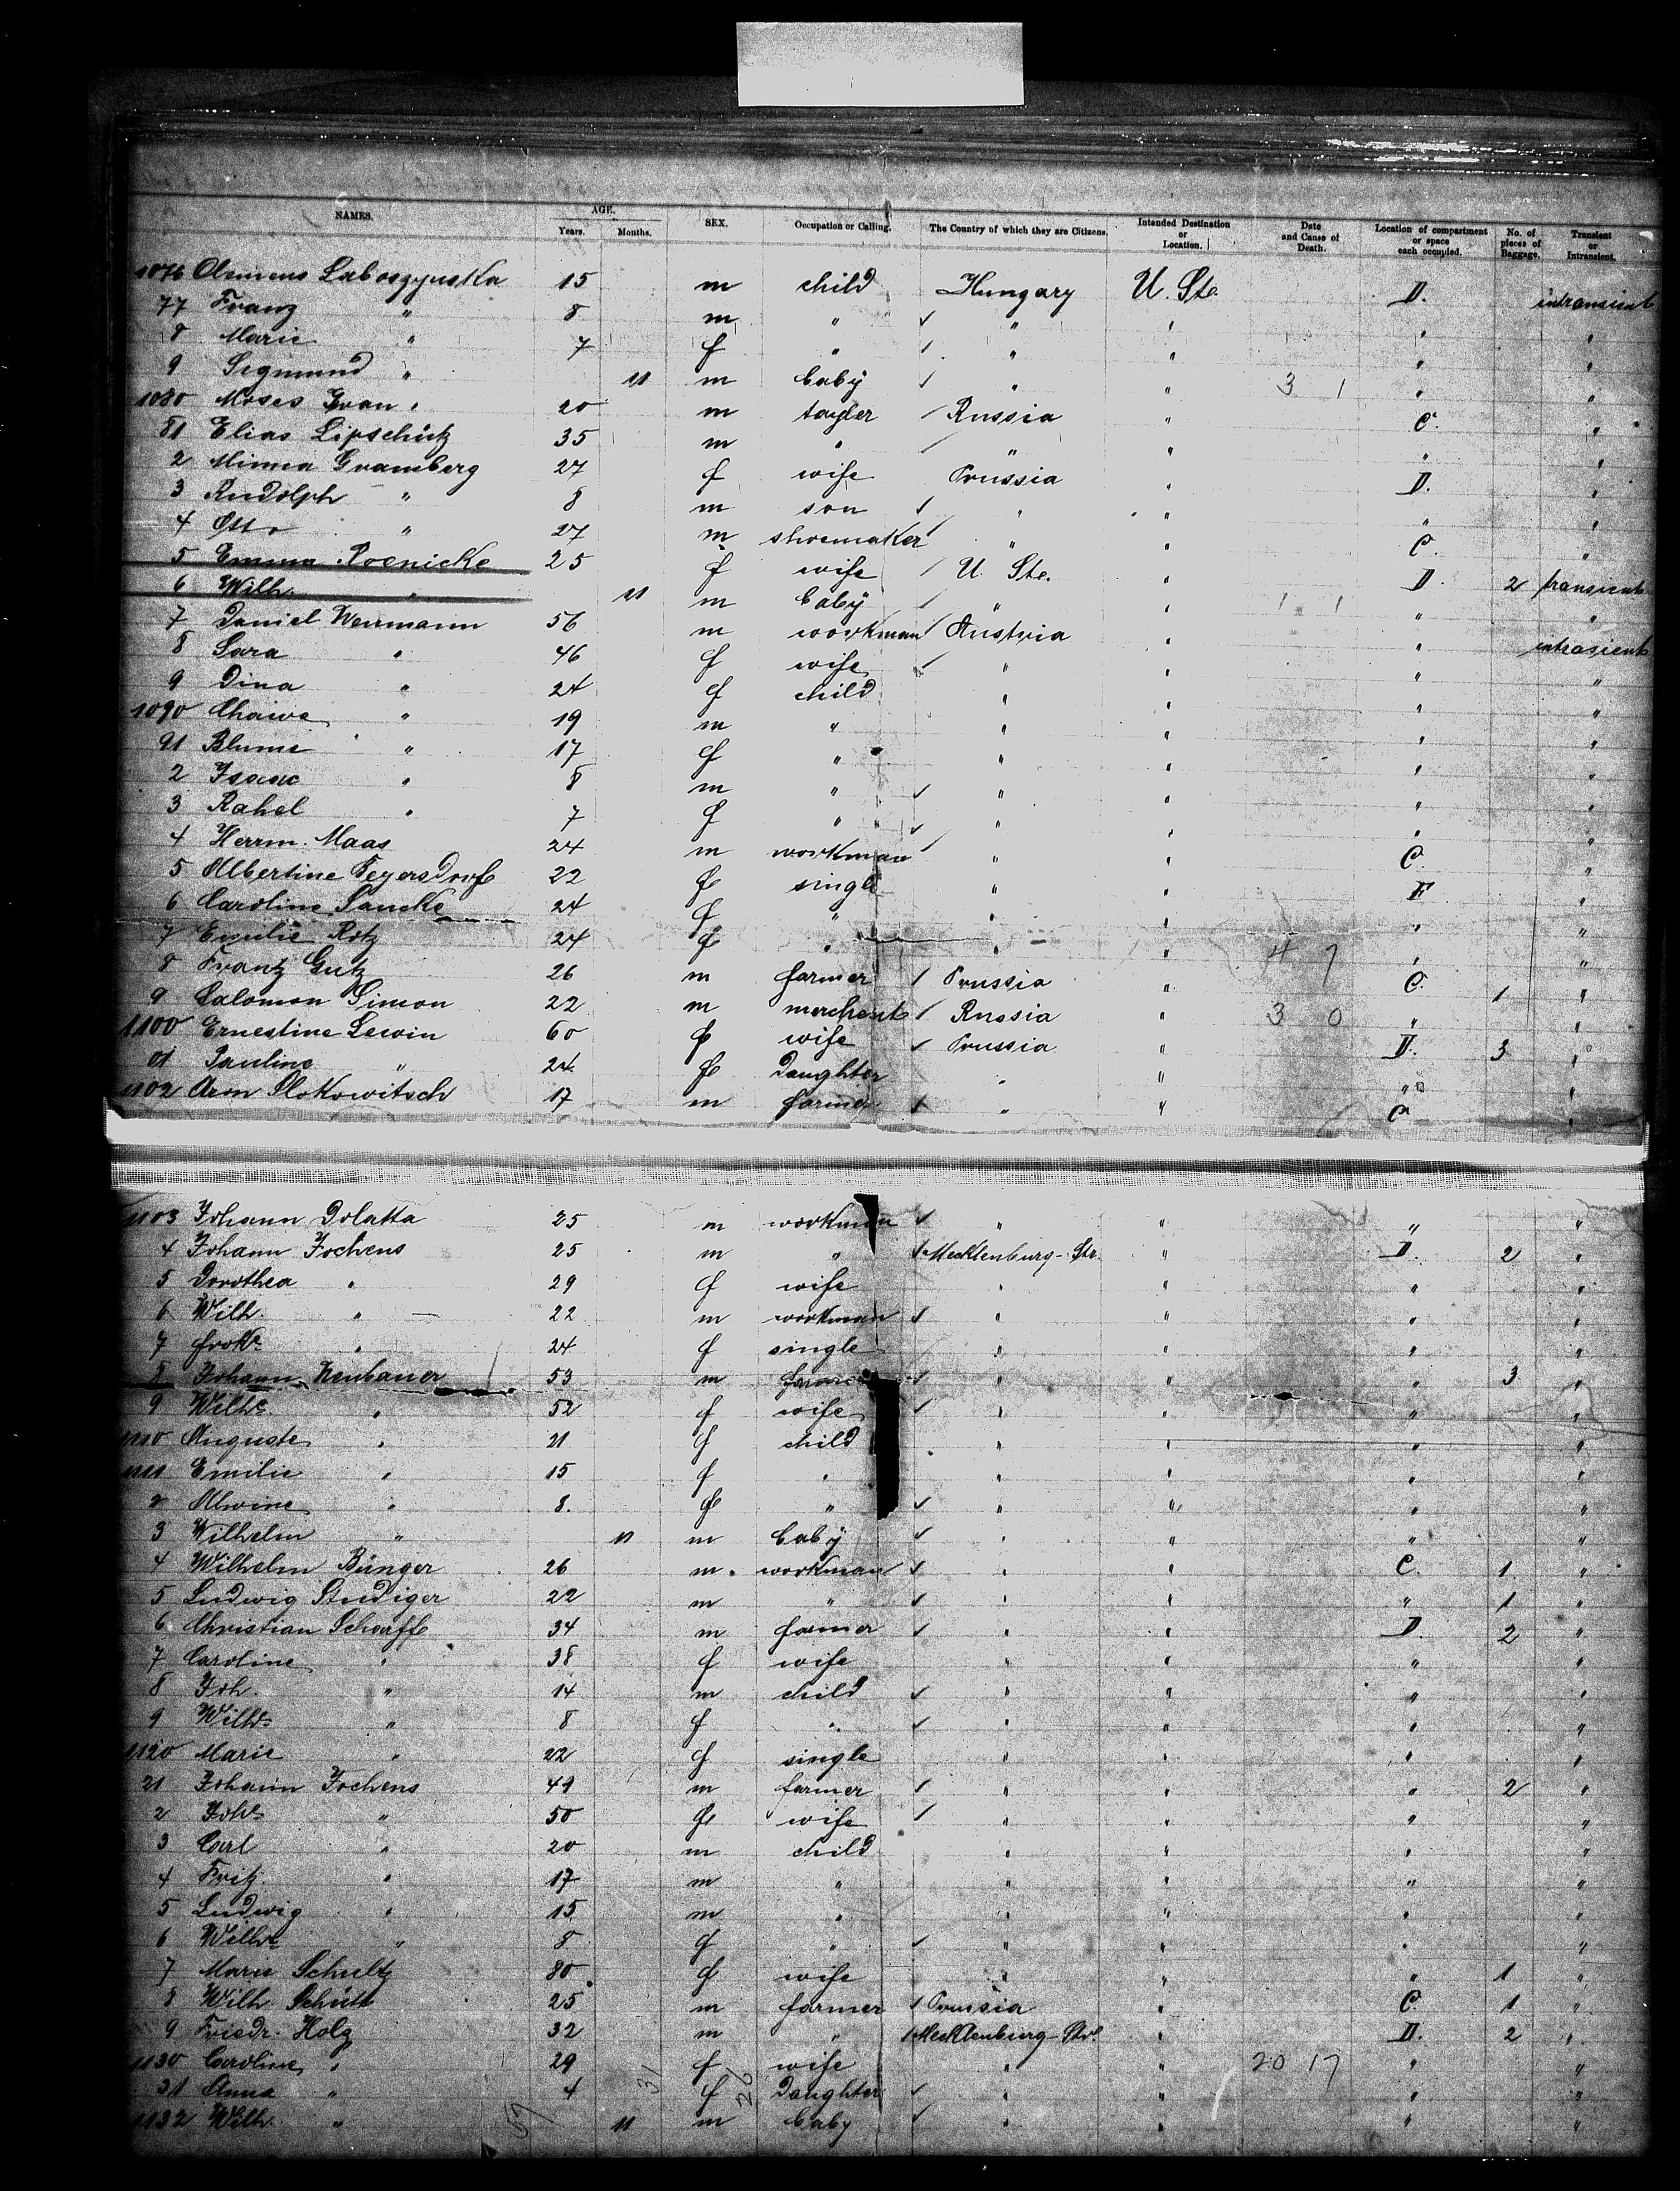 NAMES. AGE. Years. Months. SEX. Occupation or Calling. The Country of which they are Citizens. Intended Destination or Location. Date and Cause of Death. Location of compartment or space each occupied. No. of pieces of Baggage. Transient or Intransient.
1076 Clemens 15 m child Hungary U. Sts. D. intransient
77 Franz " 8 m " " " " "
8 Marie " 7 f " " " " "
9 Sigmund " 11 m baby " " 3 1 " "
1080 Moses 20 m tayler Russia " C. "
81 Elias Lipschütz 35 m " " " " "
2 Minna Gramberg 27 f wife Prussia " D. "
3 Rudolph " 8 m son " " " "
4 Otto " 27 m shoemaker " " C. "
5 Emma Roenicke 25 f wife U. Sts. " D. 2 transient
6 Wilh. " 11 m baby " " 1 1 " "
7 Daniel Wenmann 56 m workman Austria " " intrasient
8 Sara " 46 f wife " " " "
9 Dina " 24 f child " " " "
1090 Chaiwe " 19 m " " " " "
91 Blume " 17 f " " " " "
2 Isaac " 8 m " " " " "
3 Rahel " 7 f " " " " "
4 Herrm. Maas 24 m workman " " C. "
5 Albertine Feyersdorf 22 f single " " F "
6 Caroline Sancke 24 f " " " " "
7 Emilie Rotz 24 f " " " 4 7 " "
8 Franz Gutz 26 m farmer Prussia " C. 1 "
9 Salomon Simon 22 m merchent Russia " 3 0 " "
1100 Ernestine Lewin 60 f wife Prussia " D. 3 "
01 Pauline " 24 f Daughter " " " "
1102 Aron Slokowitsch 17 m farmer " " C. "
1103 Johann Dolatta 25 m workman " " " "
4 Johann Jochens 25 m " Mecklenburg-Str. " D. 2 "
5 Dorothea " 29 f wife " " " "
6 Wilh. " 22 m workman " " " "
7 " 24 f single " " " "
8 Johann Neubauer 53 m farmer " " " 3 "
9 Wilhe. " 52 f wife " " " "
1110 Auguste " 21 f child " " " "
1111 Emilie " 15 f " " " " "
2 Alwine " 8. f " " " " "
3 Wilhelm " 11 m baby " " " "
4 Wilhelm Bünger 26 m. workman " " C. 1. "
5 Ludwig Studiger 22 m " " " " 1 "
6 Christian Scharff 34 m farmer " " D. 2 "
7 Caroline " 38 f wife " " " "
8 Joh. " 14 m child " " " "
9 Wilhe " 8 f " " " " "
1120 Marie " 22 f single " " " "
21 Johann Jochens 49 m farmer " " " 2 "
2 Johe " 50 f wife " " " "
3 Carl " 20 m child " " " "
4 Fritz " 17 m " " " " "
5 Ludwig " 15 m " " " " "
6 Wilhe " 8 f " " " " "
7 Marie Schultz 80 f wife " " " 1 "
8 Wilh. Schütt 25 m farmer Prussia " C. 1 "
9 Friedr. Holz 32 m " Mecklenburg-Str. " D. 2 "
1130 Caroline " 29 f wife " " 20 17 " "
31 Anna " 4 f Daughter " " " "
1132 Wilh. " 11 m baby " " " "
31 26
57